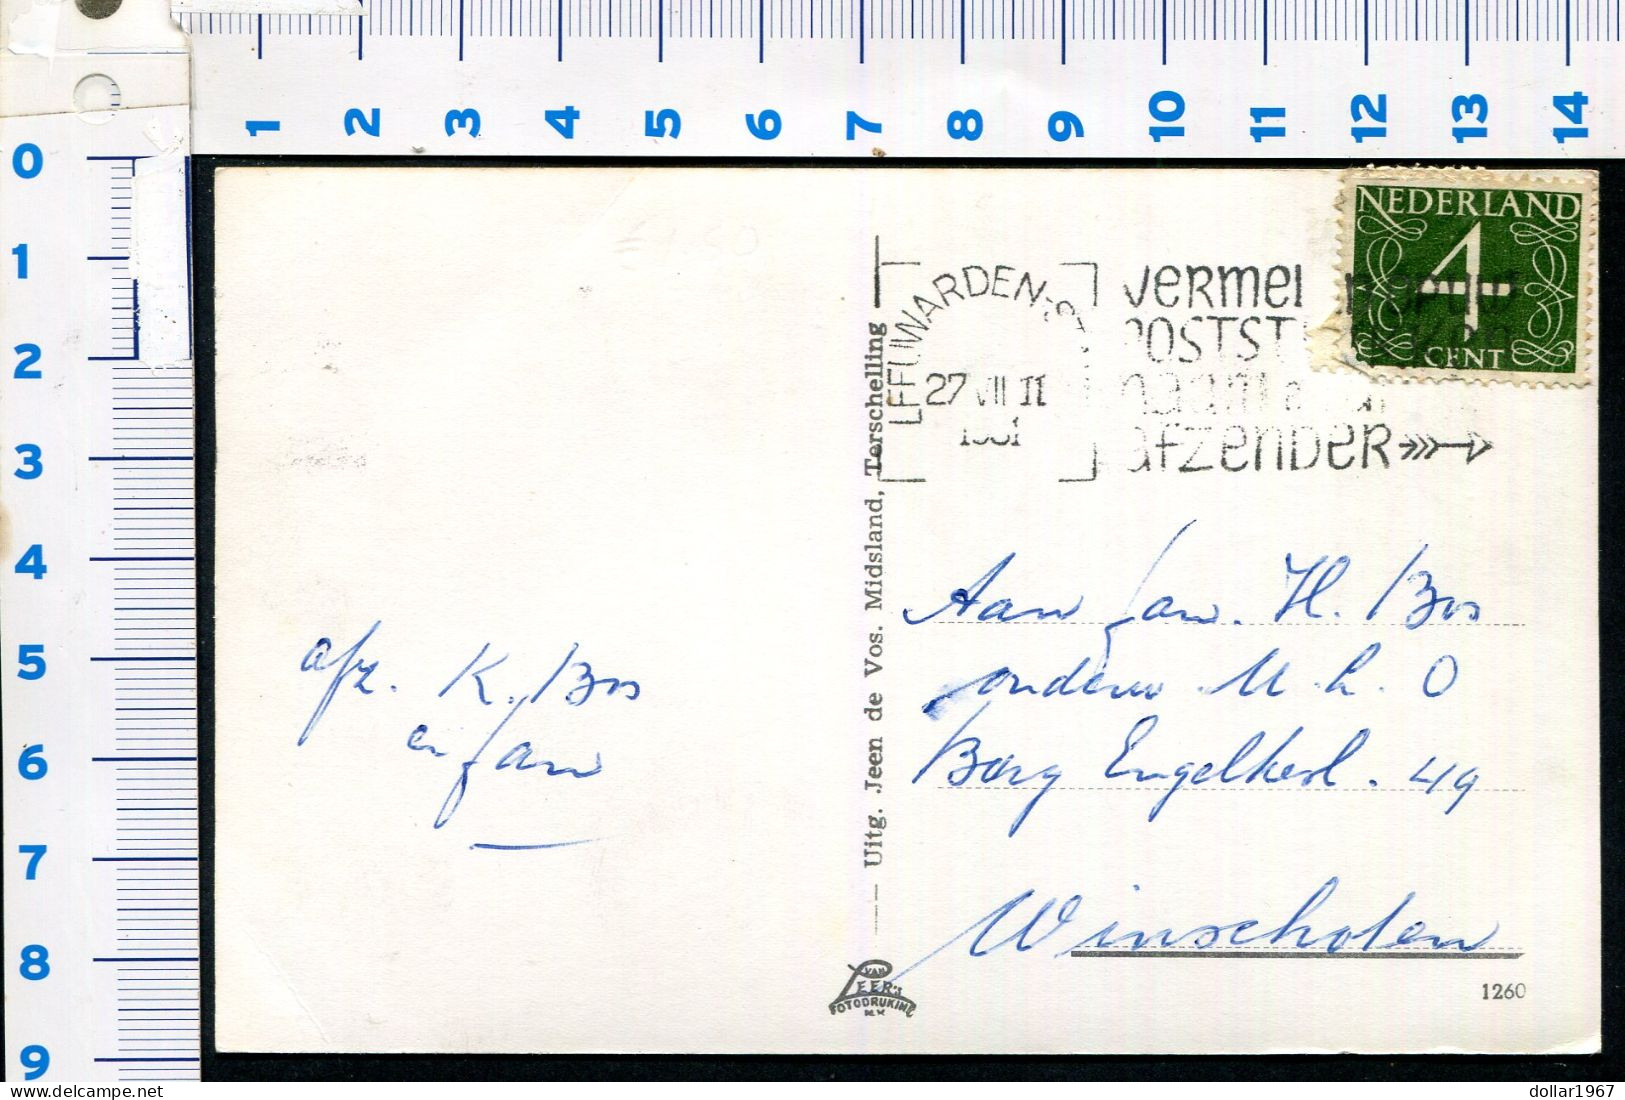 1 2 3 4 5 6 7 8 9 10 11 12 13 14
0
1
2
3
4
5
6
7
8
9
NEDERLAND
4
CENT
LEEUWARDEN
27 VII 11
VERMEL
POSTST
afzender
Aan fam. H. Bos
onderw. M.L.O
Borg Engelkesl. 49
Winschoten
afz. K. Bos
en fam
Uitg. Jeen de Vos. Midsland, Terschelling
VAN
LEER'S
FOTODRUKIND
N.V.
1260
dollar1967